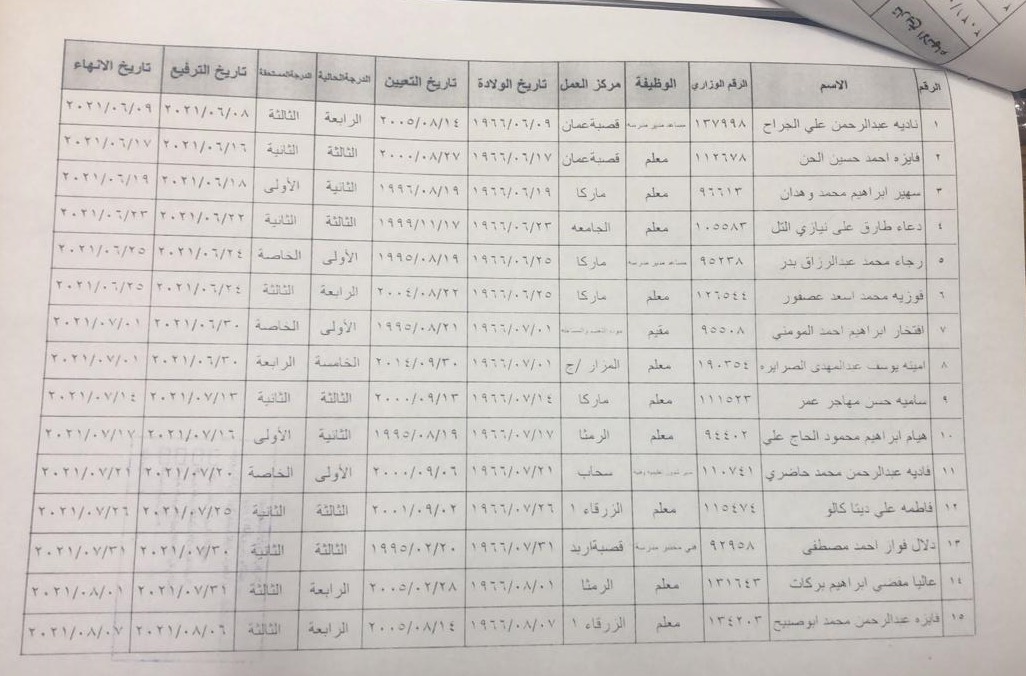 تاريخ الانهاء
الرقم الاسم الرقم الوزاري الوظيفة مركز العمل تاريخ الولادة تاريخ التعيين الدرجة الحالية الدرجة المستحقة تاريخ الترفيع تاريخ الانهاء
١ ناديه عبدالرحمن علي الجراح ١٣٧٩٩٨ مساعد مدير مدرسة قصبة عمان ١٩٦٦/٠٦/٠٩ ٢٠٠٥/٠٨/١٤ الرابعة الثالثة ٢٠٢١/٠٦/٠٨ ٢٠٢١/٠٦/٠٩
٢ فايزه احمد حسين الحن ١١٢٦٧٨ معلم قصبة عمان ١٩٦٦/٠٦/١٧ ٢٠٠٠/٠٨/٢٧ الثالثة الثانية ٢٠٢١/٠٦/١٦ ٢٠٢١/٠٦/١٧
٣ سهير ابراهيم محمد وهدان ٩٦٦١٣ معلم ماركا ١٩٦٦/٠٦/١٩ ١٩٩٦/٠٨/١٩ الثانية الأولى ٢٠٢١/٠٦/١٨ ٢٠٢١/٠٦/١٩
٤ دعاء طارق علي نيازي التل ١٠٥٥٨٣ معلم الجامعه ١٩٦٦/٠٦/٢٣ ١٩٩٩/١١/١٧ الثالثة الثانية ٢٠٢١/٠٦/٢٢ ٢٠٢١/٠٦/٢٣
٥ رجاء محمد عبدالرزاق بدر ٩٥٢٣٨ مساعد مدير مدرسة ماركا ١٩٦٦/٠٦/٢٥ ١٩٩٥/٠٨/١٩ الأولى الخاصة ٢٠٢١/٠٦/٢٤ ٢٠٢١/٠٦/٢٥
٦ فوزيه محمد اسعد عصفور ١٢٦٥٤٤ معلم ماركا ١٩٦٦/٠٦/٢٥ ٢٠٠٤/٠٨/٢٢ الرابعة الثالثة ٢٠٢١/٠٦/٢٤ ٢٠٢١/٠٦/٢٥
٧ افتخار ابراهيم احمد المومني ٩٥٥٠٨ مقيم ١٩٦٦/٠٧/٠١ ١٩٩٥/٠٨/٢١ الأولى الخاصة ٢٠٢١/٠٦/٣٠ ٢٠٢١/٠٧/٠١
٨ امينه يوسف عبدالمهدى الصرايره ١٩٠٣٥٤ معلم المزار /ج ١٩٦٦/٠٧/٠١ ٢٠١٤/٠٩/٣٠ الخامسة الرابعة ٢٠٢١/٠٦/٣٠ ٢٠٢١/٠٧/٠١
٩ ساميه حسن مهاجر عمر ١١١٥٢٣ معلم ماركا ١٩٦٦/٠٧/١٤ ٢٠٠٠/٠٩/١٣ الثالثة الثانية ٢٠٢١/٠٧/١٣ ٢٠٢١/٠٧/١٤
١٠ هيام ابراهيم محمود الحاج علي ٩٤٤٠٢ معلم الرمثا ١٩٦٦/٠٧/١٧ ١٩٩٥/٠٨/١٩ الثانية الأولى ٢٠٢١/٠٧/١٦ ٢٠٢١/٠٧/١٧
١١ فاديه عبدالرحمن محمد حاضري ١١٠٧٤١ سحاب ١٩٦٦/٠٧/٢١ ٢٠٠٠/٠٩/٠٦ الأولى الخاصة ٢٠٢١/٠٧/٢٠ ٢٠٢١/٠٧/٢١
١٢ فاطمه علي ديتا كالو ١١٥٤٧٤ معلم الزرقاء ١ ١٩٦٦/٠٧/٢٦ ٢٠٠١/٠٩/٠٢ الثالثة الثانية ٢٠٢١/٠٧/٢٥ ٢٠٢١/٠٧/٢٦
١٣ دلال فواز احمد مصطفى ٩٢٩٥٨ فني مختبر مدرسة قصبة اربد ١٩٦٦/٠٧/٣١ ١٩٩٥/٠٢/٢٠ الثالثة الثانية ٢٠٢١/٠٧/٣٠ ٢٠٢١/٠٧/٣١
١٤ عاليا مفضي ابراهيم بركات ١٣١٦٤٣ معلم الرمثا ١٩٦٦/٠٨/٠١ ٢٠٠٥/٠٢/٢٨ الرابعة الثالثة ٢٠٢١/٠٧/٣١ ٢٠٢١/٠٨/٠١
١٥ فايزه عبدالرحمن محمد ابوصبيح ١٣٤٢٠٣ معلم الزرقاء ١ ١٩٦٦/٠٨/٠٧ ٢٠٠٥/٠٨/١٤ الرابعة الثالثة ٢٠٢١/٠٨/٠٦ ٢٠٢١/٠٨/٠٧